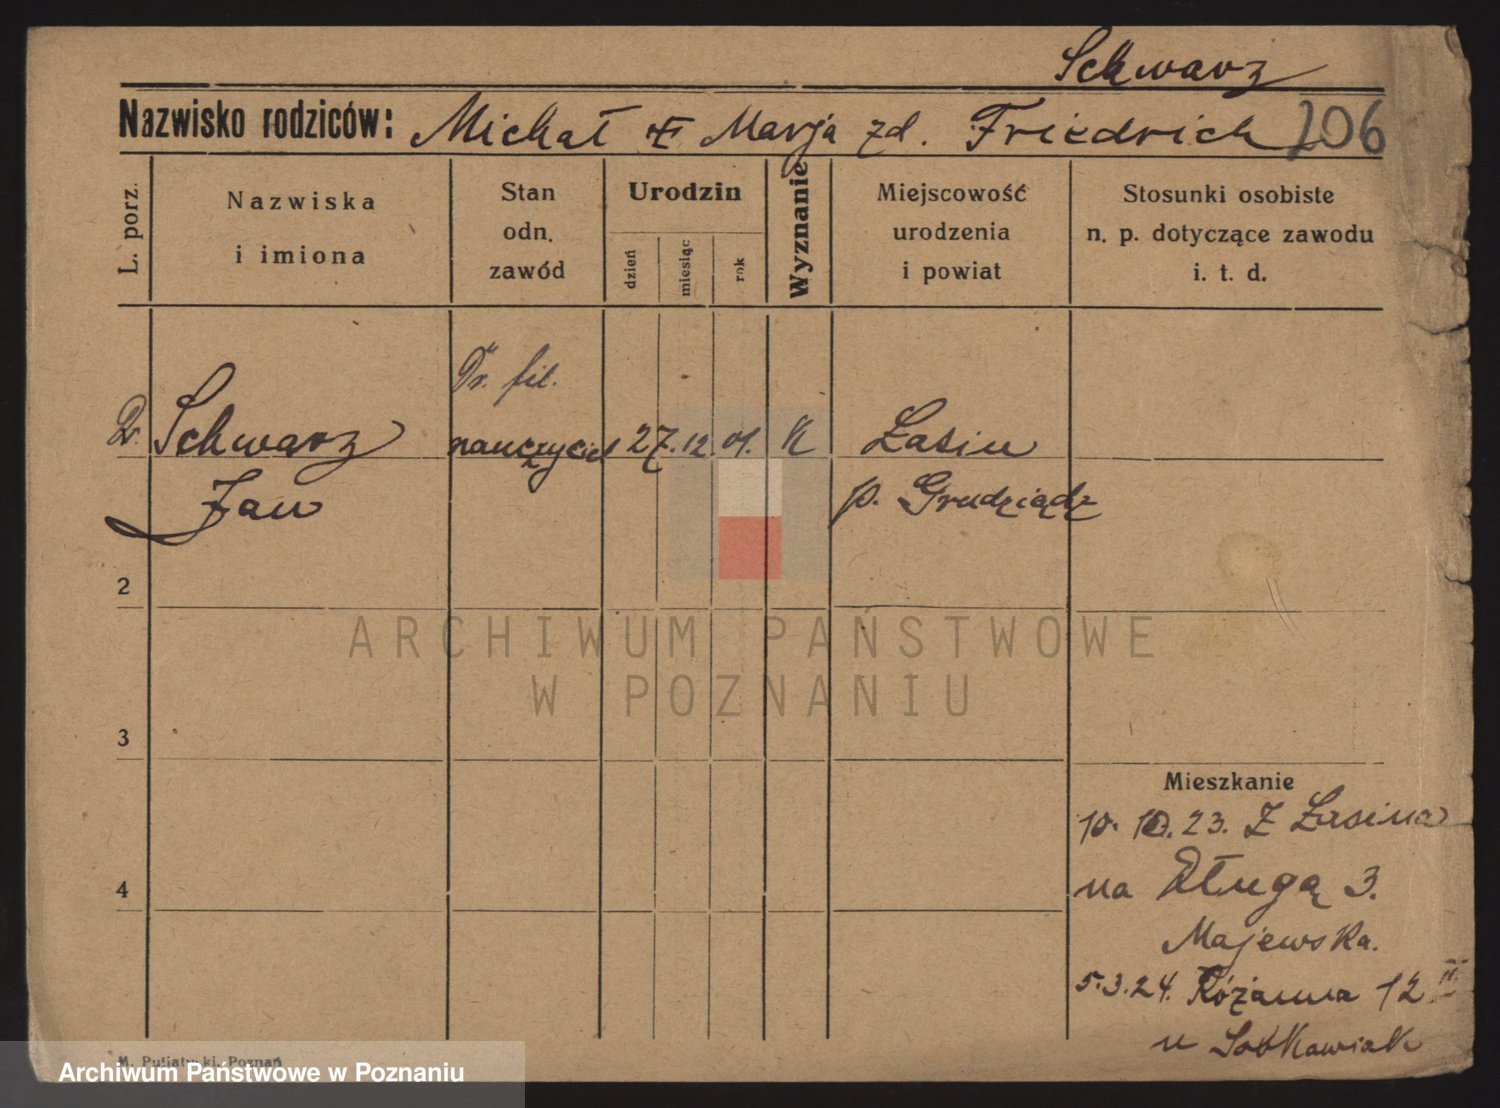 Schwarz
Nazwisko rodziców: Michał Marja zd. Friedrich 206
L. porz.
Nazwiska
i imiona
Stan
odn.
zawód
Urodzin
dzień
miesiąc
rok
Wyznanie
Miejscowość
urodzenia
i powiat
Stosunki osobiste
n. p. dotyczące zawodu
i. t. d.
Dr. fil.
Schwarz nauczyciel 27. 12. 01. K Łasin
Jan p. Grudziądz
2
3
4
Mieszkanie
10. 10. 23. Z Łasina
na Długą 3.
Majewska.
5.3.24. Różanna 12
u
M. Putiatycki, Poznań
ARCHIWUM PAŃSTWOWE
W POZNANIU
Archiwum Państwowe w Poznaniu